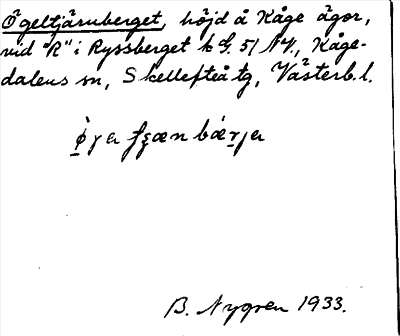 Ögeltjärnberget, höjd å Kåge ägor,
vid "R" i Ryssberget k bl. 51 NV., Kåge-
dalens sn, Skellefteå tg, Västerb. l.
B. Nygren 1933.